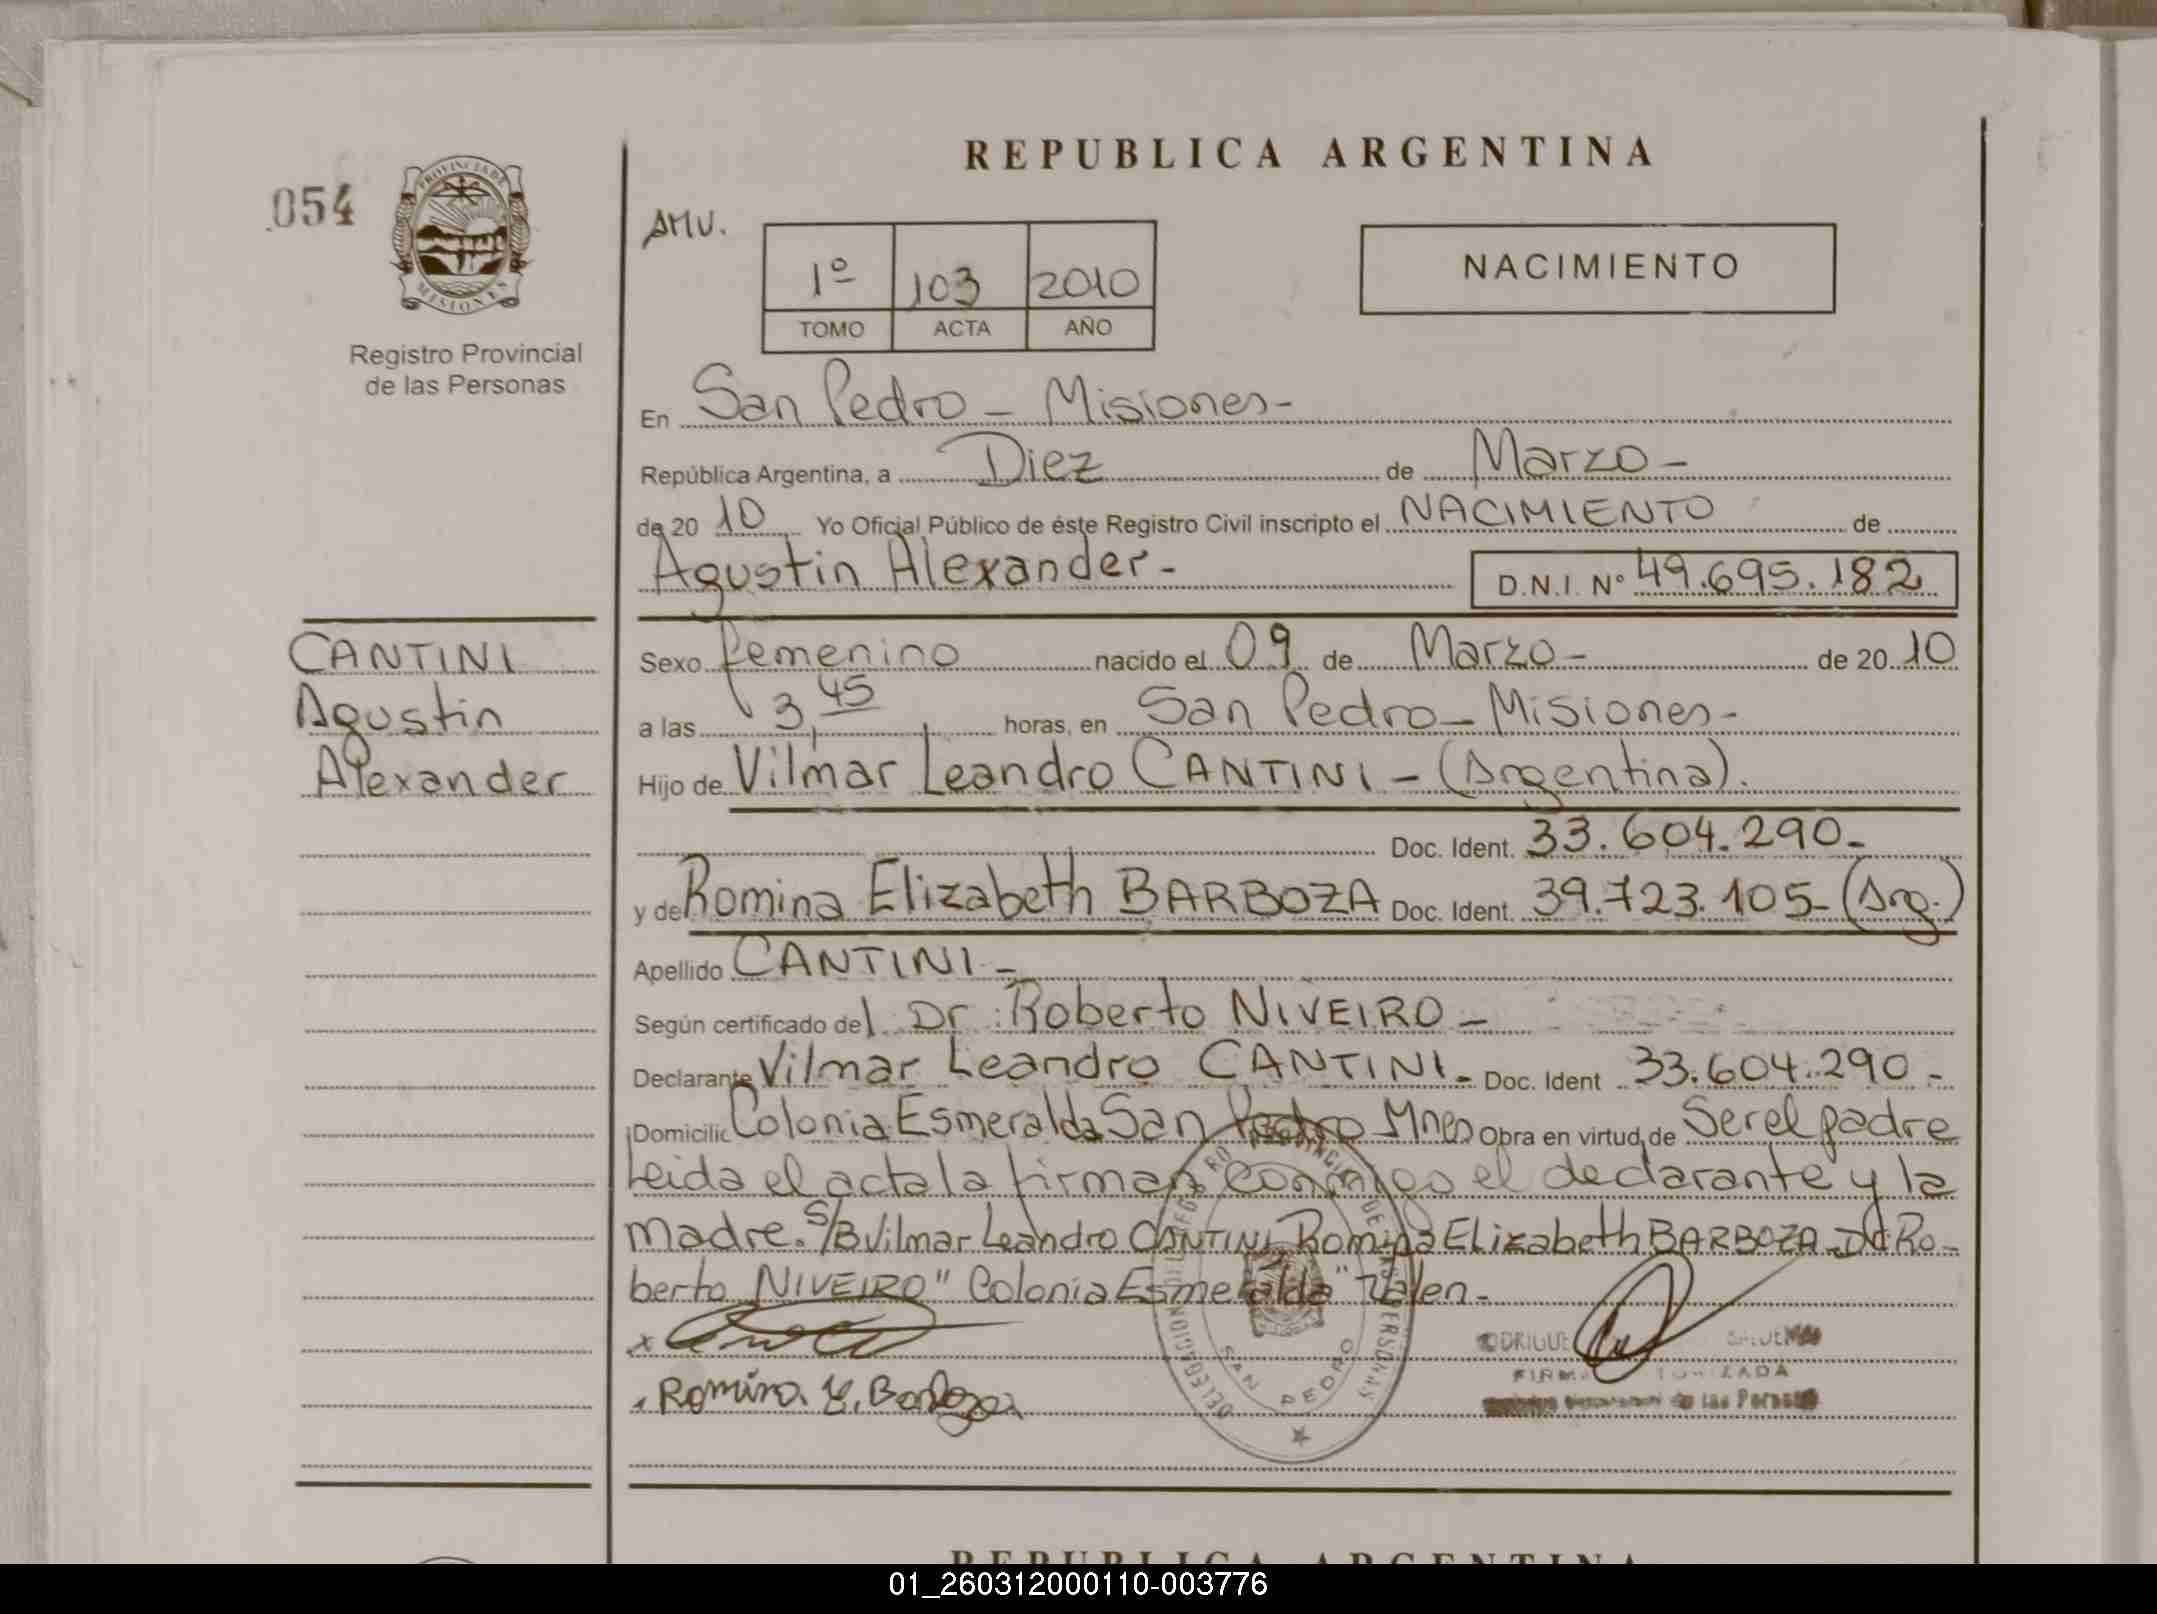 REPUBLICA ARGENTINA
054
PROVINCIA DE
MISIONES
Registro Provincial
de las Personas
AMV.
1º 103 2010
TOMO ACTA AÑO
NACIMIENTO
En San Pedro - Misiones-
República Argentina, a Diez de Marzo-
de 20 10 Yo Oficial Público de éste Registro Civil inscripto el NACIMIENTO de
Agustin Alexander- D.N.I. Nº 49.695.182
CANTINI
Agustin
Alexander
Sexo femenino nacido el 09 de Marzo- de 20 10
a las 3,45 horas, en San Pedro- Misiones-
Hijo de Vilmar Leandro CANTINI - (Argentina).
Doc. Ident. 33.604.290-
y de Romina Elizabeth BARBOZA Doc. Ident. 39.723.105- (Arg.)
Apellido CANTINI-
Según certificado del Dr. Roberto NIVEIRO-
Declarante Vilmar Leandro CANTINI- Doc. Ident 33.604.290-
Domicilio Colonia Esmeralda San Pedro Mnes Obra en virtud de Ser el padre
Leida el acta la firman conmigo el declarante y la
madre. S/B Vilmar Leandro CANTINI, Romina Elizabeth BARBOZA Dr Ro-
berto NIVEIRO" Colonia Esmeralda" Valen-
x
Romina. E. Barboza
SAN PEDRO
FIRMA
de las Personas
REPUBLICA ARGENTINA
01_260312000110-003776